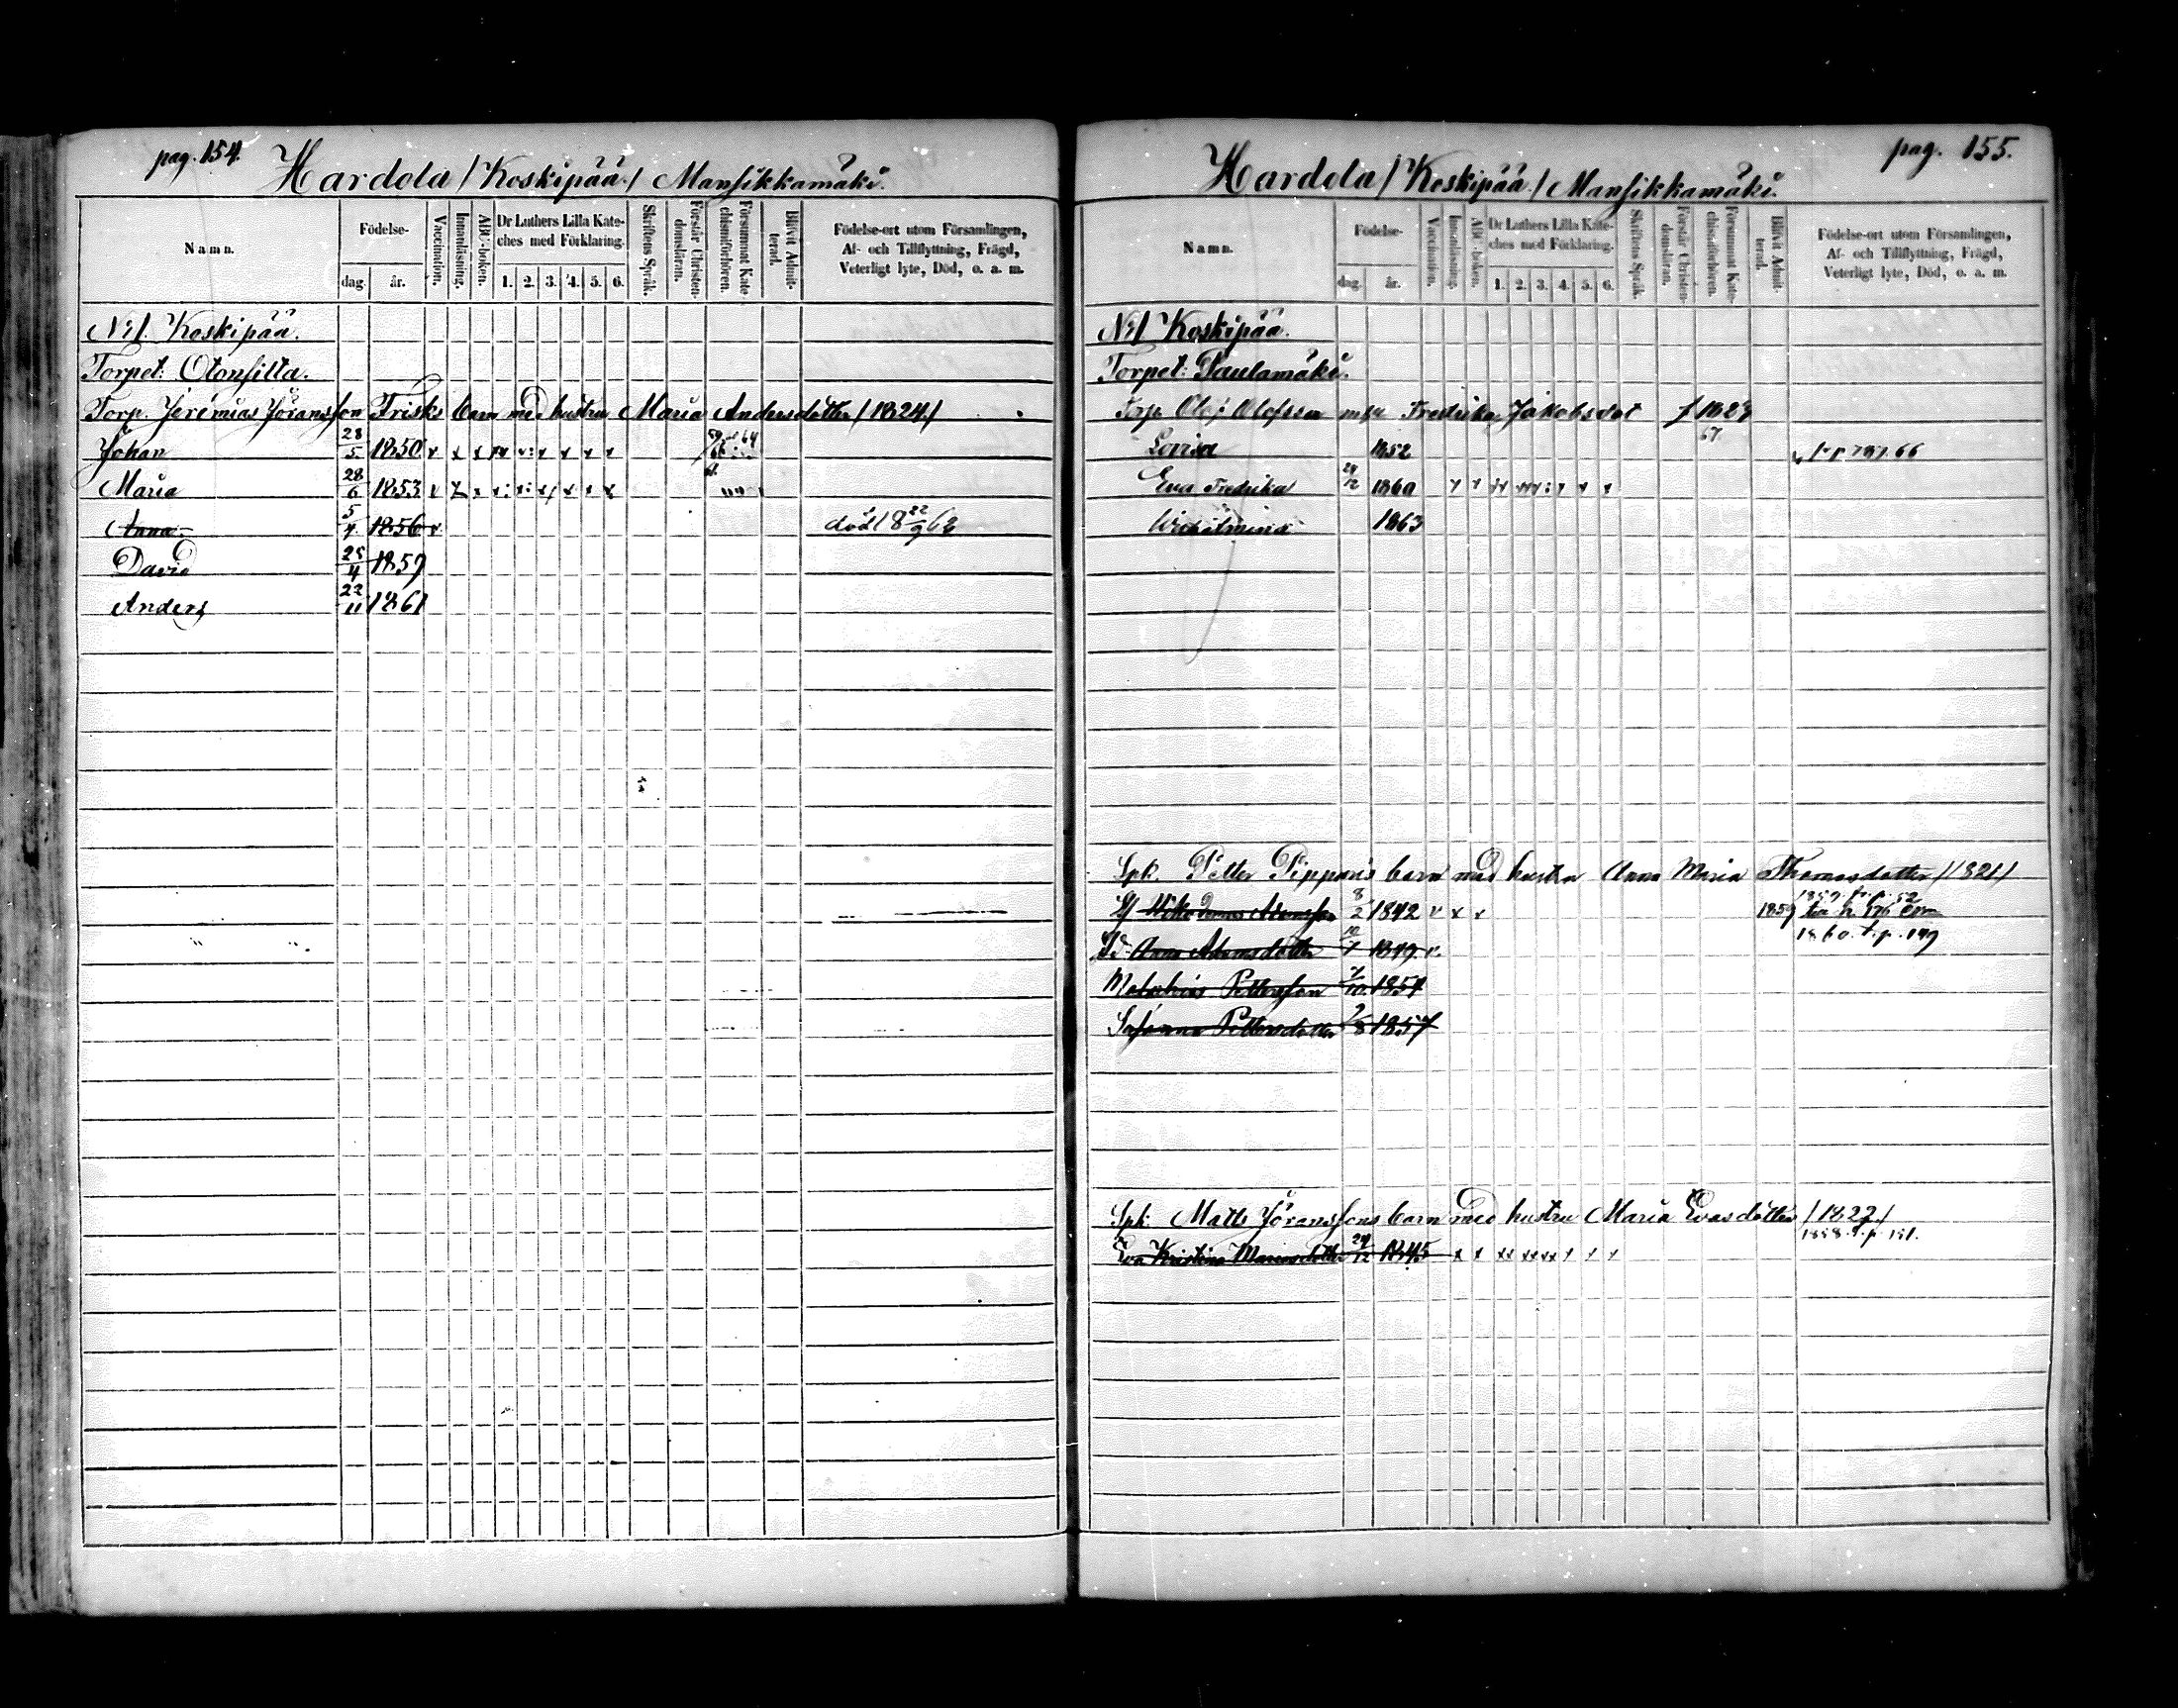 pag. 154.
Hardola / Koskipää / Mansikkamäki.
Namn. Födelse- dag. år. Vaccination. Innanläsning. ABC-boken. Dr Luthers Lilla Kateches med Förklaring. 1. 2. 3. 4. 5. 6. Skriftens Språk. Förstår Christendomsläran. Försummat Katechismiförhören. Blifvit Admitterad. Födelse-ort utom Församlingen, Af- och Tillflyttning, Frägd, Veterligt lyte, Död, o. a. m.
N:1. Koskipää.
Torpet: Otonsilta.
Torp. Jeremias Jöransson Frisks barn med hustru Maria Andersdotter /1824/
Johan 28/5 1850
Maria 28/6 1853
Anna 5/4 1856 död 18 22/9 63
David 25/4 1859
Anders 22/11 1861
pag. 155.
Hardola / Koskipää / Mansikkamäki.
Namn. Födelse- dag. år. Vaccination. Innanläsning. ABC-boken. Dr Luthers Lilla Kateches med Förklaring. 1. 2. 3. 4. 5. 6. Skriftens Språk. Förstår Christendomsläran. Försummat Katechismiförhören. Blifvit Admitterad. Födelse-ort utom Församlingen, Af- och Tillflyttning, Frägd, Veterligt lyte, Död, o. a. m.
N:1 Koskipää.
Torpet: Paulamäki.
Torp. Olof Olofsson Fredrika Jakobsdot f 1829
Lovisa 1852
Eva Fredrika 24/12 1860
Wilhelmina 1863
Spk. Petter Pipparis barn med hustru Anna Maria Thomasdotter /1821/
Sf Nikodemus Adamsson 8/2 1842 1859 t. p. 52
Sd. Anna Adamsdotter 10/1 1849 1860. t. p. 149
Malakias Pettersson 7/10 1854
Susanna Pettersdotter 9/8 1857
Spk. Matts Jöranssons barn med hustru Maria Evasdotter /1822/
Eva Kristina Mariasdotter 24/12 1845 1858. t. p. 151.